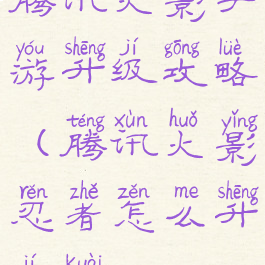 腾讯火影手
yóu shēng jí gōng lüè
游升级攻略
téng xùn huǒ yǐng
（腾讯火影
rěn zhě zěn me shēng
忍者怎么升
jí kuài